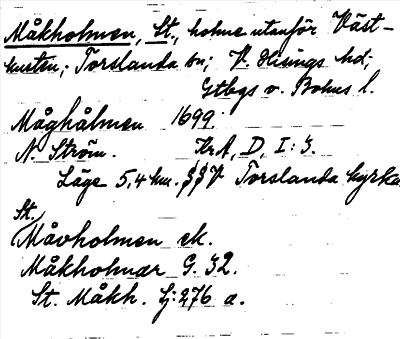 Måkholmen, St., holme utanför Väst-
kusten; Torslanda sn; V. Hisings hd;
Gtbgs o. Bohus l.
Måghålmen 1699.
N. Ström. KrA, D, I: 3.
Läge 5,4 km. V Torslanda kyrka
St.
Måvholmen ek.
Måkholmar G. 32.
St. Måkh. Lj: 276 a.